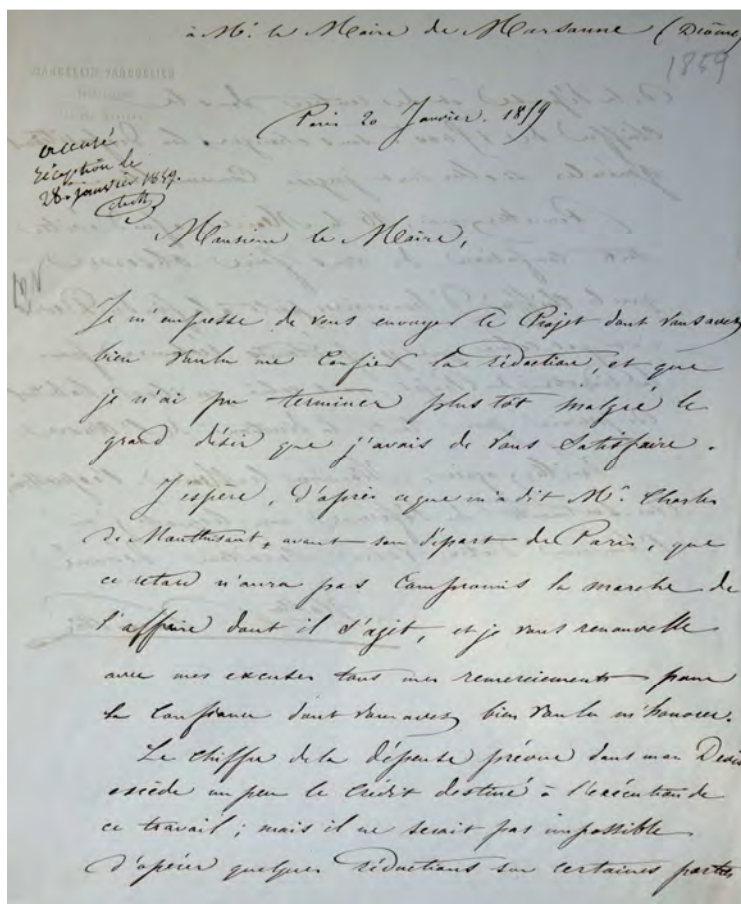 à Mr. le Maire de Marsanne (Drôme)
1859
Paris 20 Janvier. 1859
accusé
réception le
28. janvier 1859.
Monsieur le Maire,
Je m'empresse de vous envoyer le Projet dont vous avez
bien voulu me confier la rédaction, et que
je n'ai pu terminer plus tôt malgré le
grand désir que j'avais de vous satisfaire.
J'espère, d'après ce que m'a dit Mr. Charles
de Montluisant, avant son départ de Paris, que
ce retard n'aura pas compromis la marche de
l'affaire dont il s'agit, et je vous renouvelle
avec mes excuses tous mes remerciements pour
la confiance dont vous avez bien voulu m'honorer.
Le chiffre de la dépense prévue dans mon Devis
excède un peu le crédit destiné à l'exécution de
ce travail ; mais il ne serait pas impossible
d'opérer quelques réductions sur certaines parties